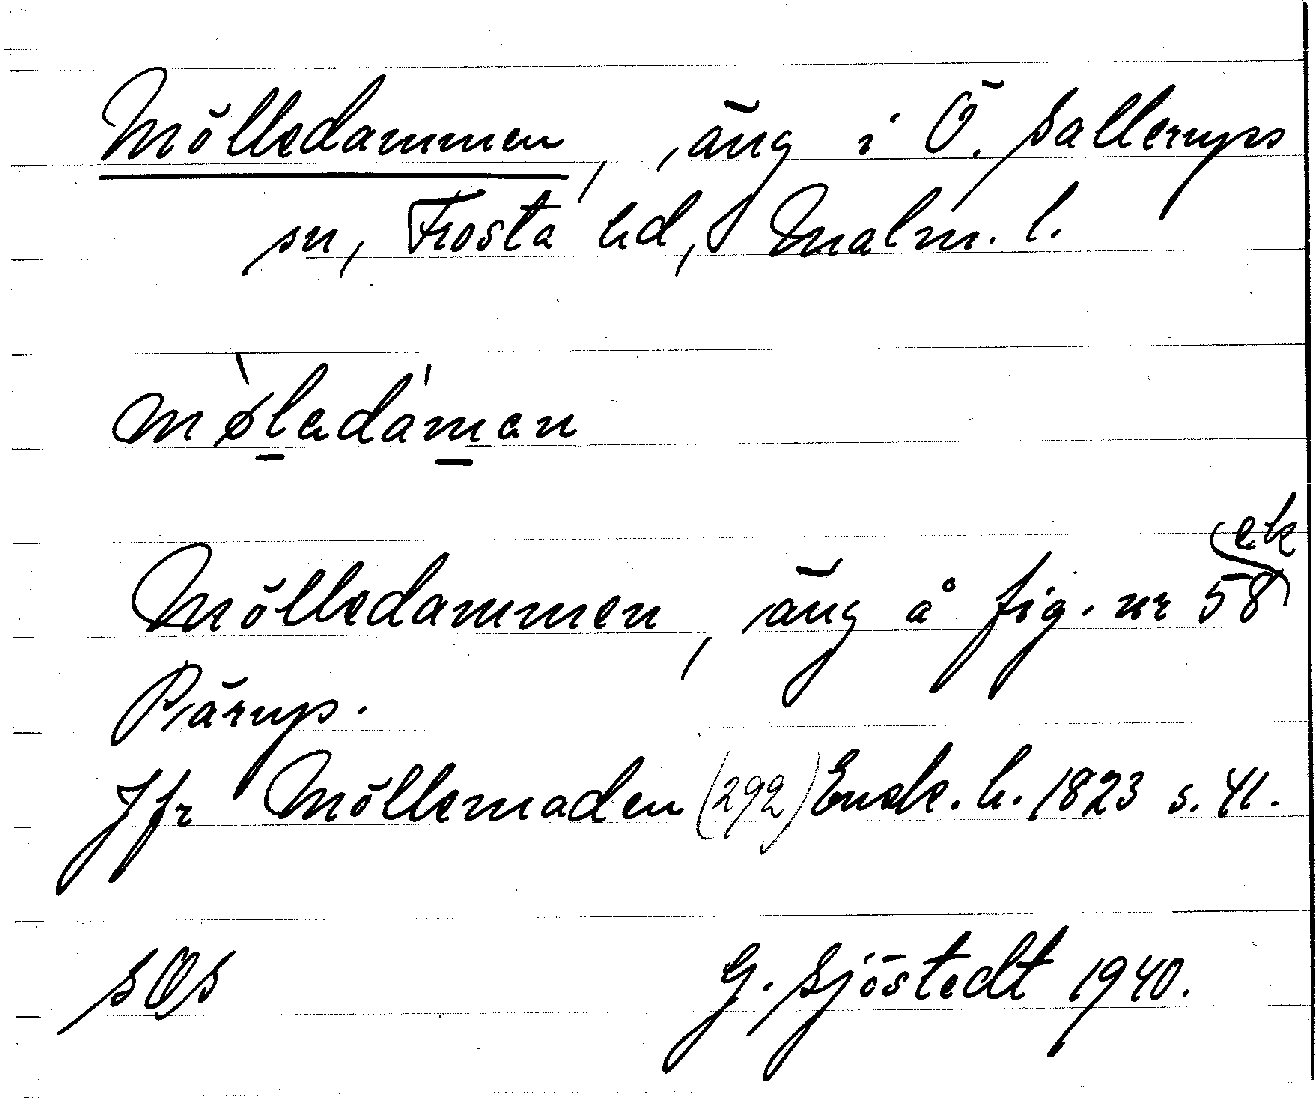 Mölledammen, äng i Ö. Sallerups
sn, Frosta hd, Malm. l.
mø̀ledámen
ek
Mölledammen, äng å fig. nr 58
Pärup.
Jfr Möllemaden (292) Ensk. h. 1823 s. 41.
SOS G. Sjöstedt 1940.